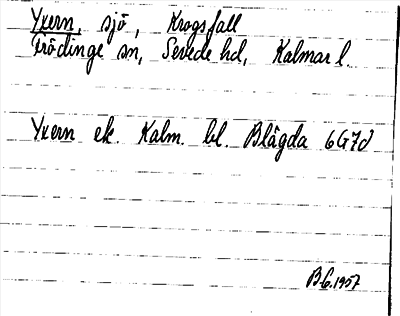 Yxern, sjö, Krogsfall
Frödinge sn, Sevede hd, Kalmar l.
Yxern ek. Kalm. bl. Blågda 6G7d
1957